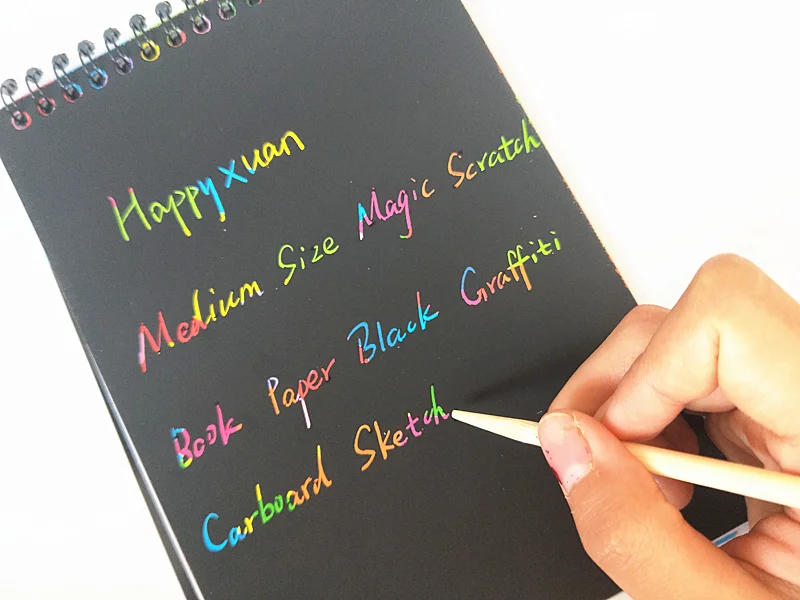 Happyxuan
Medium Size Magic Scratch
Book Paper Black Graffiti
Carboard Sketch